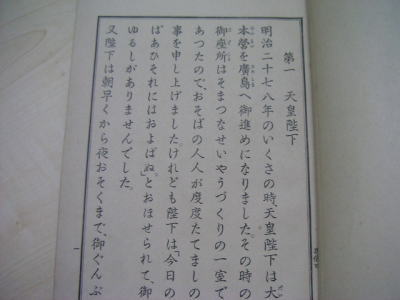 第一　天皇陛下
明治二十七八年のいくさの時、天皇陛下は大
本營を廣島へ御進めになりました。その時の
御座所はそまつなせいやうづくりの一室で
あつたので、おそばの人人が度度たてましの
事を申し上げましたけれども陛下は、「今日の
ばあひそれにはおよばぬ。」とおほせられて、御
ゆるしがありませんでした。
又陛下は朝早くから夜おそくまで、御ぐんぶ
一